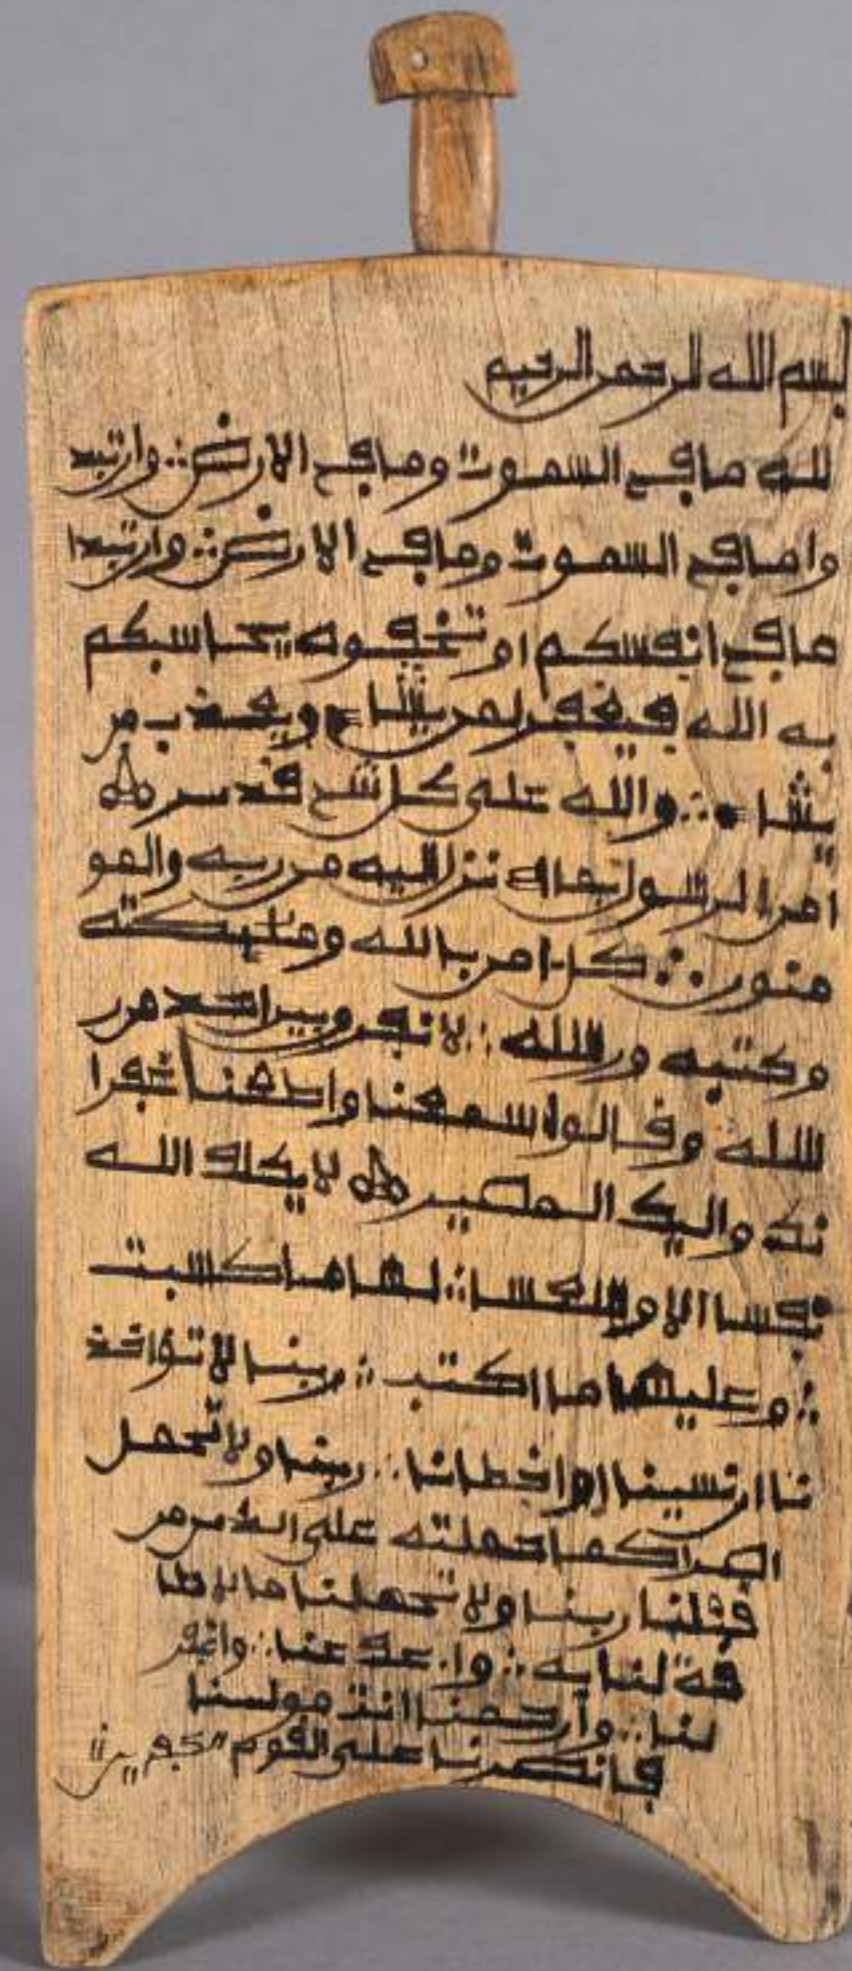 بسم الله الرحمن الرحيم
لله ما في السموت وما في الارض وان تبد
وا ما في السموت وما في الارض وان تبدا
ما في انفسكم او تخفوه يحاسبكم
به الله فيغفر لمن يشاء ويعذب من
يشاء والله على كل شي قدير
امن الرسول بما انزل اليه من ربه والمو
منون كل امن بالله وملئكته
وكتبه ورسله لا نفرق بين احد من ر
سله وقالوا سمعنا واطعنا غفرا
نك واليك المصير لا يكلف الله
نفسا الا وسعسا لها ما كسبت
وعليها ما اكتب ربنا لا تؤاخذ
نا ان نسينا او اخطانا ربنا ولا تحمل
اصرا كما حملته على الذين من
قبلنا ربنا ولا تحملنا ما لا طا
قة لنا به واعف عنا واغفر
لنا وارحمنا انت مولسنا
فانصرنا على القوم الكفرين